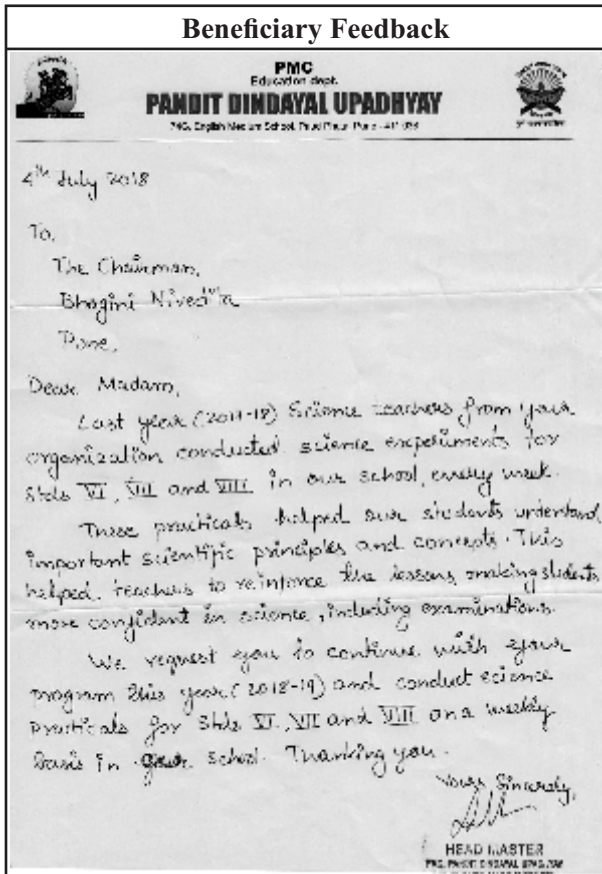 Beneficiary Feedback
PMC
Education dept.
PANDIT DINDAYAL UPADHYAY
English Medium School, Pune - 411 038
4th July 2018
To,
The Chairman,
Bhagini Nivedita
Pune.
Dear Madam,
Last year (2017-18) Science teachers from your
organization conducted science experiments for
Stds VI, VII and VIII in our school, every week.
These practicals helped our students understand
important scientific principles and concepts. This
helped teachers to reinforce the lessons, making students
more confident in science, including examinations.
We request you to continue with your
program this year (2018-19) and conduct science
practicals for Stds VI, VII and VIII on a weekly
basis in our school. Thanking you.
Yours Sincerely,
HEAD MASTER